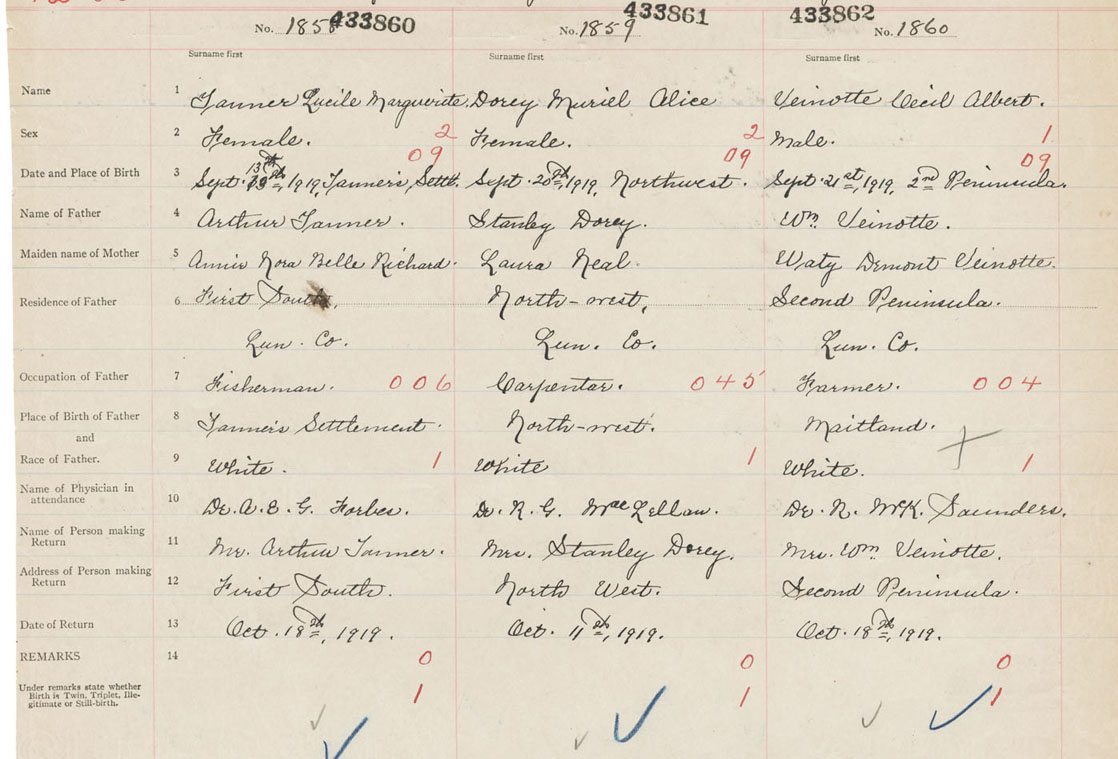 433860 433861 433862
No. 1858 No. 1859 No. 1860
Surname first Surname first Surname first
Name 1 Tanner Lucile Marguerite Dorey Muriel Alice Veinotte Cecil Albert.
Sex 2 Female. 2 Female. 2 Male. 1
09 09 09
13th
Date and Place of Birth 3 Sept. 1919, Tanner's Settt. Sept. 20th, 1919, Northwest. Sept. 21st, 1919, 2nd Peninsula.
Name of Father 4 Arthur Tanner. Stanley Dorey. Wm Veinotte.
Maiden name of Mother 5 Annie Nora Belle Richard. Laura Neal. Waty Demont Veinotte.
Residence of Father 6 First South, North-west, Second Peninsula.
Lun. Co. Lun. Co. Lun. Co.
Occupation of Father 7 Fisherman. 006 Carpentar. 045 Farmer. 004
Place of Birth of Father 8 Tanner's Settlement. North-west. Maitland.
and
Race of Father. 9 White. 1 White 1 White. 1
Name of Physician in
attendance 10 Dr. A. E. G. Forbes. Dr. R. G. MacLellan. Dr. R. McK. Saunders.
Name of Person making
Return 11 Mr. Arthur Tanner. Mrs. Stanley Dorey. Mrs. Wm Veinotte.
Address of Person making
Return 12 First South. North West. Second Peninsula.
Date of Return 13 Oct. 18th, 1919. Oct. 11th, 1919. Oct. 18th, 1919.
REMARKS 14 0 0 0
Under remarks state whether
Birth is Twin, Triplet, Ille-
gitimate or Still-birth. 1 1 1